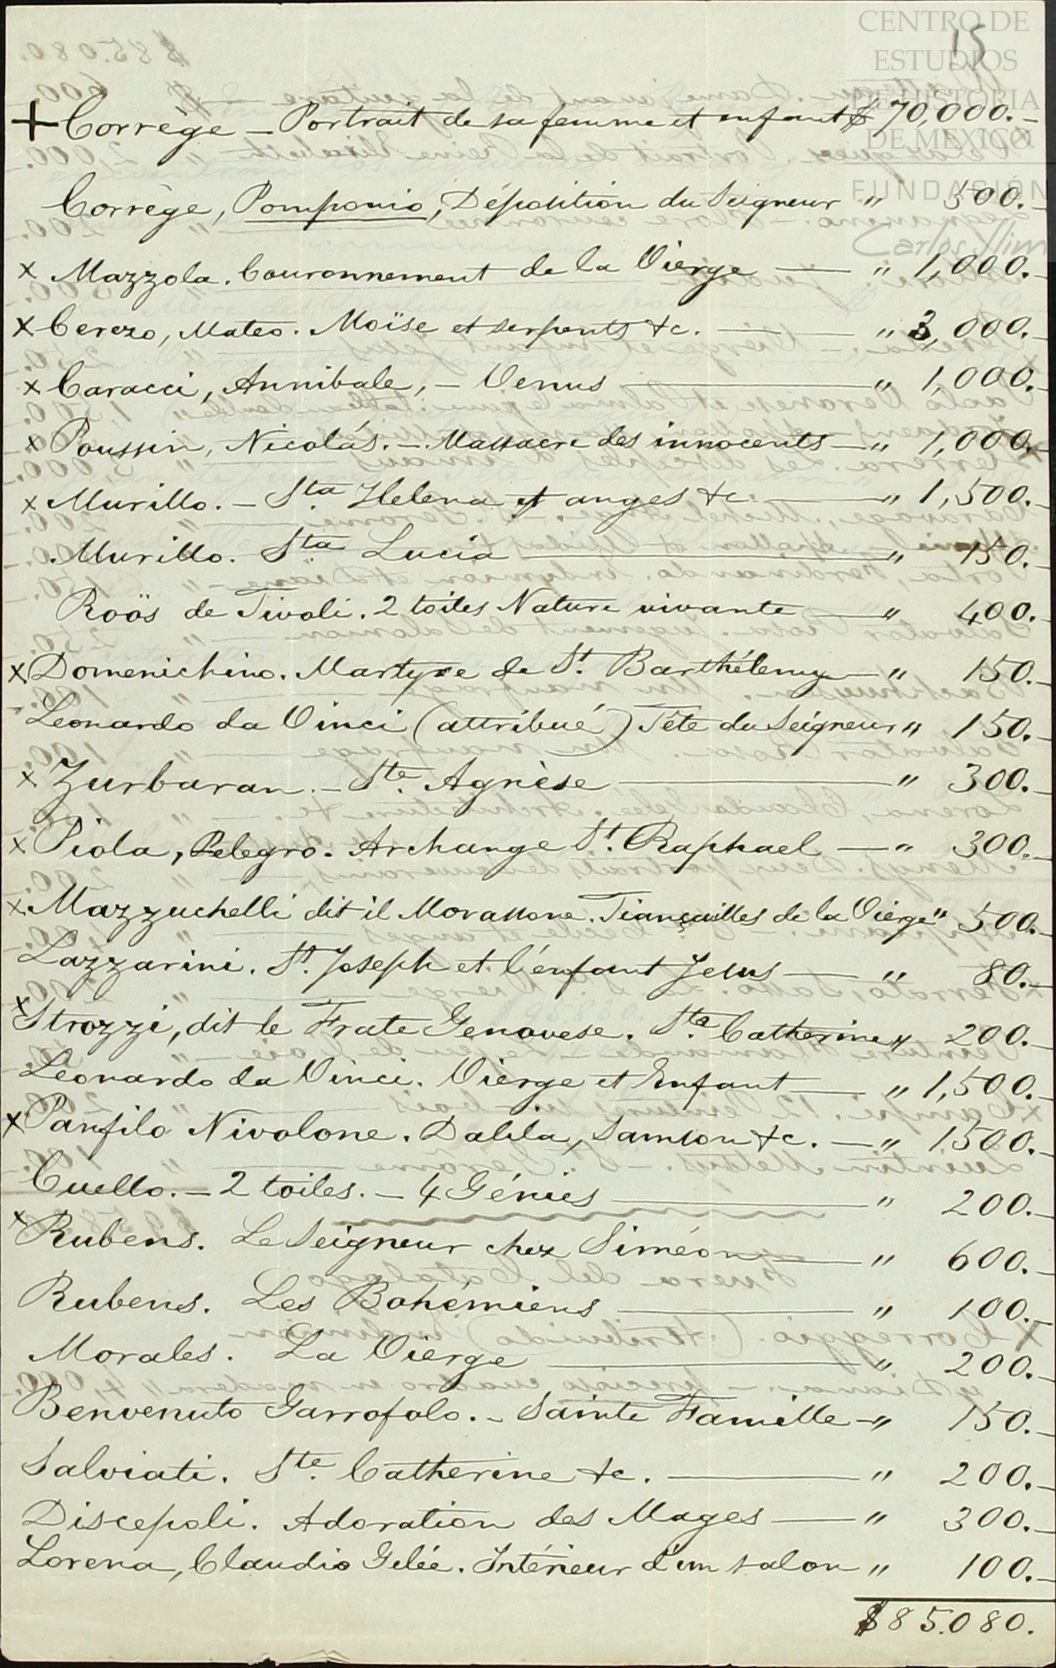 CENTRO DE
ESTUDIOS
DE HISTORIA
DE MEXICO
FUNDACIÓN
Carlos Slim
15
+ Corrège – Portrait de sa femme et enfant $ 70,000.–
Corrège, Pomponio, Déposition du Seigneur " 500.–
x Mazzola. Couronnement de la Vierge — " 1,000.–
x Cerezo, Mateo. Moïse et serpents &c. — " 3,000.–
x Caracci, Annibale, – Venus — " 1,000.–
x Poussin, Nicolás. – Massacre des innocents — " 1,000.–
x Murillo. – Sta. Helena et anges &c. — " 1,500.–
. Murillo. Sta Lucia — " 150.–
Roös de Tivoli. 2 toiles Nature vivante — " 400.–
x Domenichino. Martyre de St. Barthélemy — " 150.–
Leonardo da Vinci (attribué) Tête du Seigneur " 150.–
x Zurbaran. – Ste. Agnèse — " 300.–
x Piola, Pelegro. Archange St. Raphael — " 300.–
x Mazzuchelli dit il Morassone. Fiançailles de la Vierge " 500.–
Lazzarini. St. Joseph et l'enfant Jesus — " 80.–
x Strozzi, dit le Frate Genovese. Sta. Catherine " 200.–
Leonardo da Vinci. Vierge et Enfant — " 1,500.–
x Panfilo Nivolone. Dalila, Samson &c. — " 1500.–
Cuello. – 2 toiles. – 4 Génies — " 200.–
x Rubens. Le Seigneur chez Siméon — " 600.–
Rubens. Les Bohémiens — " 100.–
Morales. La Vierge — " 200.–
Benvenuto Garrofolo. – Sainte Famille – " 150.–
Salviati. Ste. Catherine &c. — " 200.–
Discepoli. Adoration des Mages — " 300.–
Lorena, Claudio Gelée. Intérieur d'un salon " 100.–
$85.080.